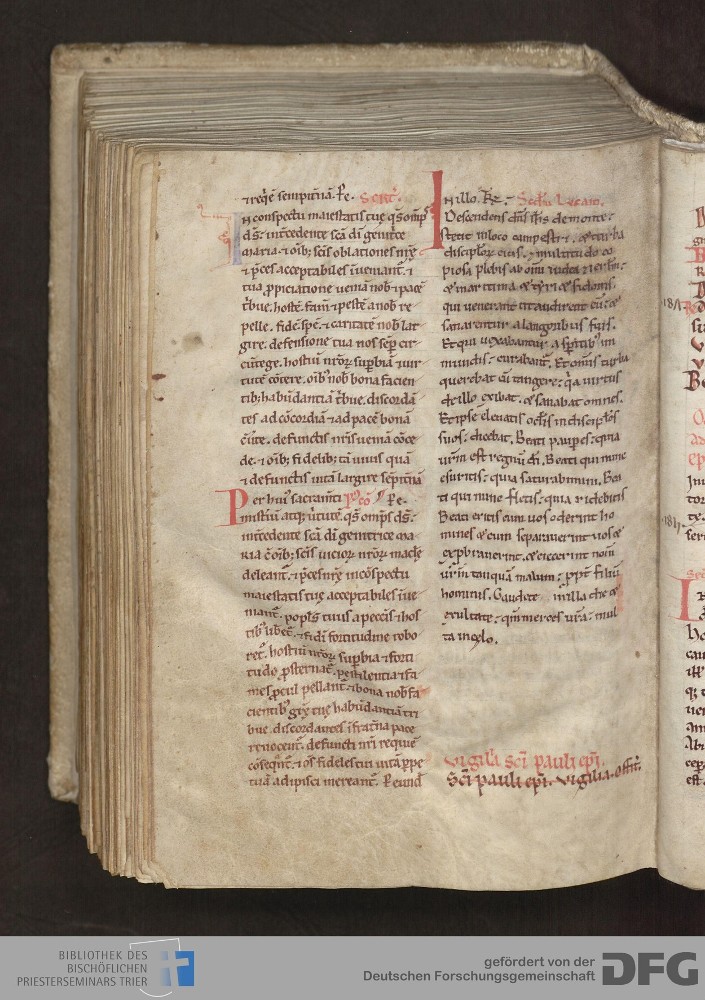 ⁊ reqͥē sempitnā. Ꝑe. Secͬ.
In conspectu maiestatis tuę qͦs omps
ds: intcedente scā dī genitce
maria. ⁊ oīb; scīs oblationes nrę
⁊ pces acceptabiles inveniant. ⁊
tua ꝓpiciatione veniā nob ⁊ pacē
tbue. hostē. famē ⁊ pestē a nob re
pelle. fidē spē. ⁊ caritatē nob lar
gire. defensione tua nos semp cir
cūtege. hostiū nroꝝ supbiā ⁊ uir
tutē cōtere. oīb nob bona facien
tib; habundantiā tbue. discordā
tes ad cōcordiā ⁊ ad pacē bonā
cūte. defunctis nrīs ueniā cōce
de. ⁊ oīb; fidelib; tā uiuis quā
⁊ defunctis uitā largire sempitnā
Per huiꝰ sacramti Pͦ cō Ꝑe.
misteriū atq; uirtutē. qͦs omps ds:
intcedente scā dī genitrice ma
ria cū oīb; scīs uicioꝝ nroꝝ maclę
deleant. ⁊ pces nrę in cōspectu
maiestatis tuę acceptabiles inue
niant. popls tuus a peccis ⁊ hos
tibꝰ libet. ⁊ fidi fortitudine robo
ret. hostiū nroꝝ supbia ⁊ forti
tudo ꝓsternat. pestilentia ⁊ fa
mes ꝓcul pellant ⁊ bona nob fa
cientibꝰ grę tuę habundantia tri
bue. discordantes ⁊ fratna pace
reuocent. defuncti nrī requiē
cōsequnt. ⁊ oīs fideles tui uitā ppe
tuā adipisci mereant. Ꝑ eund
In illo. t̄r. Scdm Lucam.
Descendens dns ihs de monte:
stetit in loco campestri. & turba
disciploꝝ eius. & multitudo co
piosa plebis ab omi iudea & ierlm:
& maritima & tyri & sidonis.
qui uenerant ut audirent eū: &
sanarentur a languoribus suis.
Et qui uexabantur a spiritibꝰ in
mundis: curabant. Et omis turba
querebat eū tangere: qͥa uirtus
de illo exibat. & sanabat omnes.
Et ipse eleuatis oclis in disciplos
suos: dicebat. Beati paupes: quia
urm est regnū dī. Beati qui nunc
esuritis: quia saturabimini. Bea
ti qui nunc fletis: quia ridebitis
Beati eritis cum uos oderint ho
mines & cum separauerint uos &
exprobrauerint. & eiecerint nom̄
urm tanquā malum: ppt filiū
hominis. Gaudete in illa die &
exultate: qm merces urā: mul
ta in cęlo.
Vigilia Scī pauli epī.
Scī pauli epī. Vigilia. offm̄.
BIBLIOTHEK DES
BISCHÖFLICHEN
PRIESTERSEMINARS TRIER
gefördert von der
Deutschen Forschungsgemeinschaft
DFG